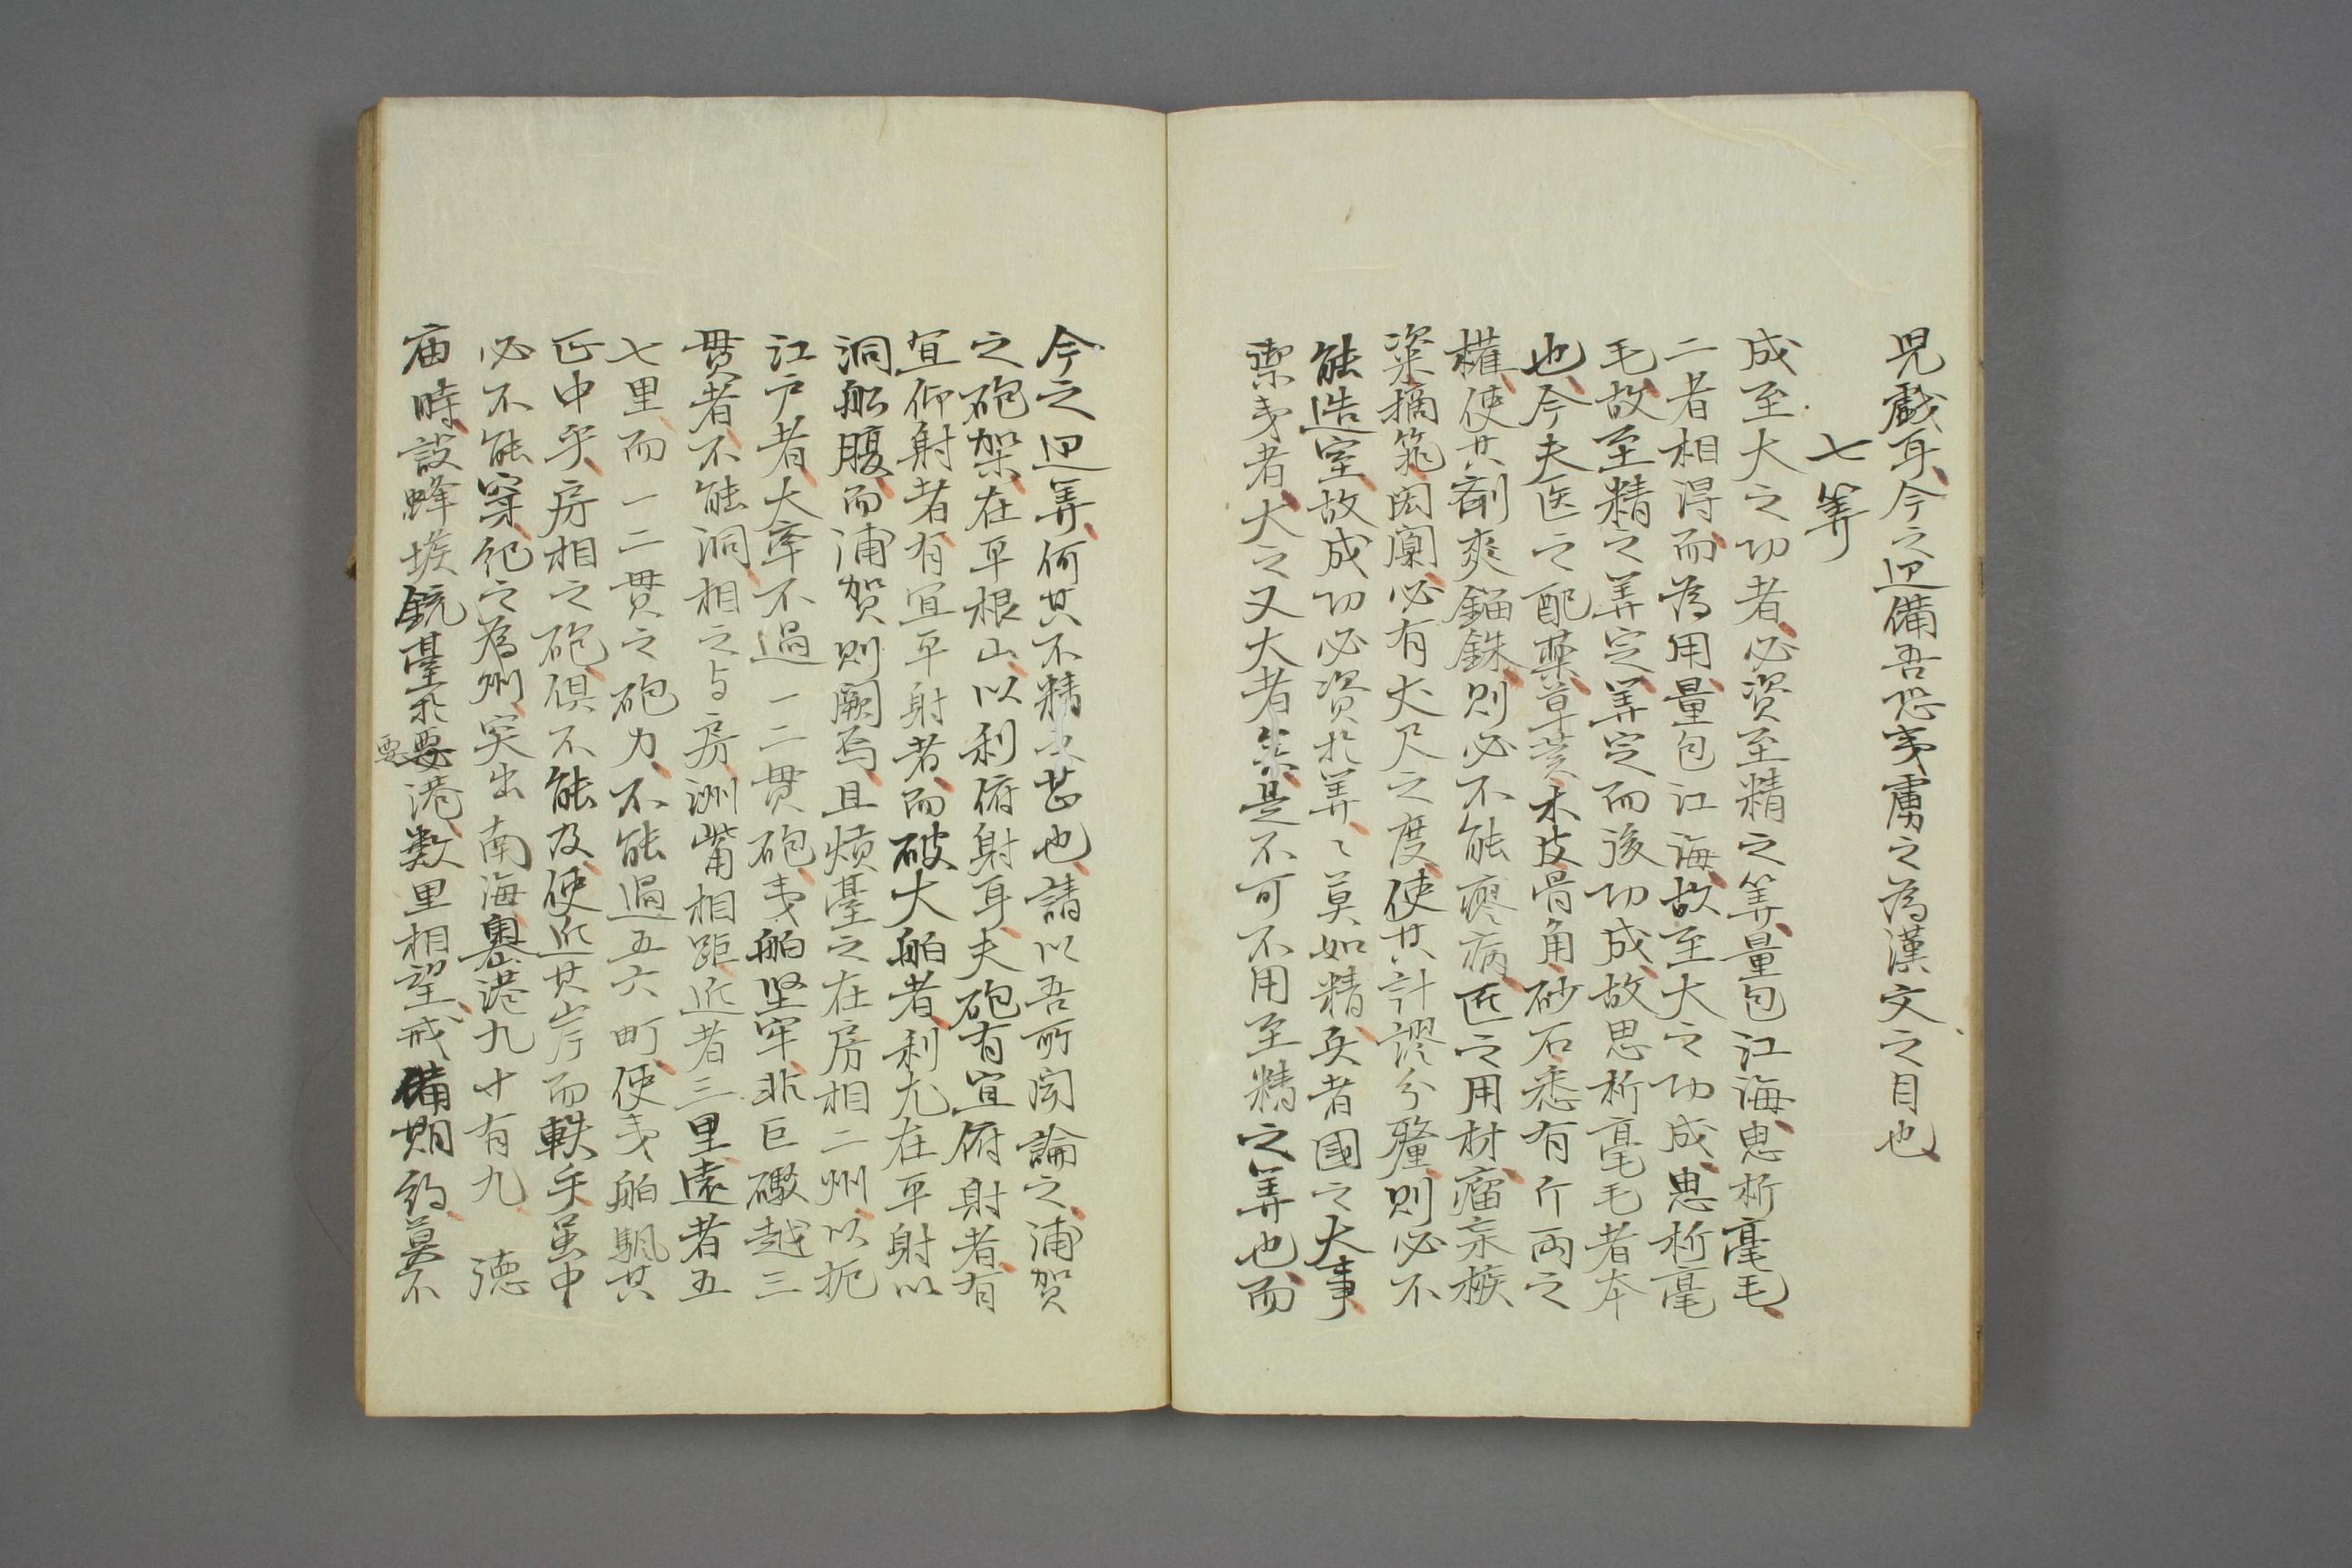 児戯耳今之辺備吾恐夷虜之為漢文之目也
七筭
成至大之功者必資至精之筭量包江海思析毫毛
二者相得而為用量包江海故至大之功成思析毫
毛故至精之筭定筭定而後功成故思析毫毛者本
也今夫医之配藥草荄木皮骨角砂石悉有斤両之
権使其剤爽錙銖則必不能瘳病匠之用材瘤宗榱
楶樀 闳闑必有丈尺之度使其計謬分釐則必不
能造室故成功必資於筭〻莫如精兵者國之大事
禦夷者大之又大者矣是不可不用至精之筭也而
今之辺筭何其不精之甚也請以吾所聞論之浦賀
之砲架在平根山以利俯射耳夫砲有宜俯射者有
宜仰射者有宜平射者而破大舶者利尤在平射以
洞船腹而浦賀則闕焉且熕臺之在房相二州以扼
江戸者大率不過一二貫砲夷舶堅牢非巨礮越三
貫者不能洞相之与房洲觜相距近者三里遠者五
七里而一二貫之砲力不能過五六町使夷舶颿其
正中乎房相之砲倶不能及使近其岸而軼乎虽中
必不能穿紀之為州突出南海墺港九十有九 徳
庙時設烽堠銃臺於要港数里相望戒備期約莫不
要